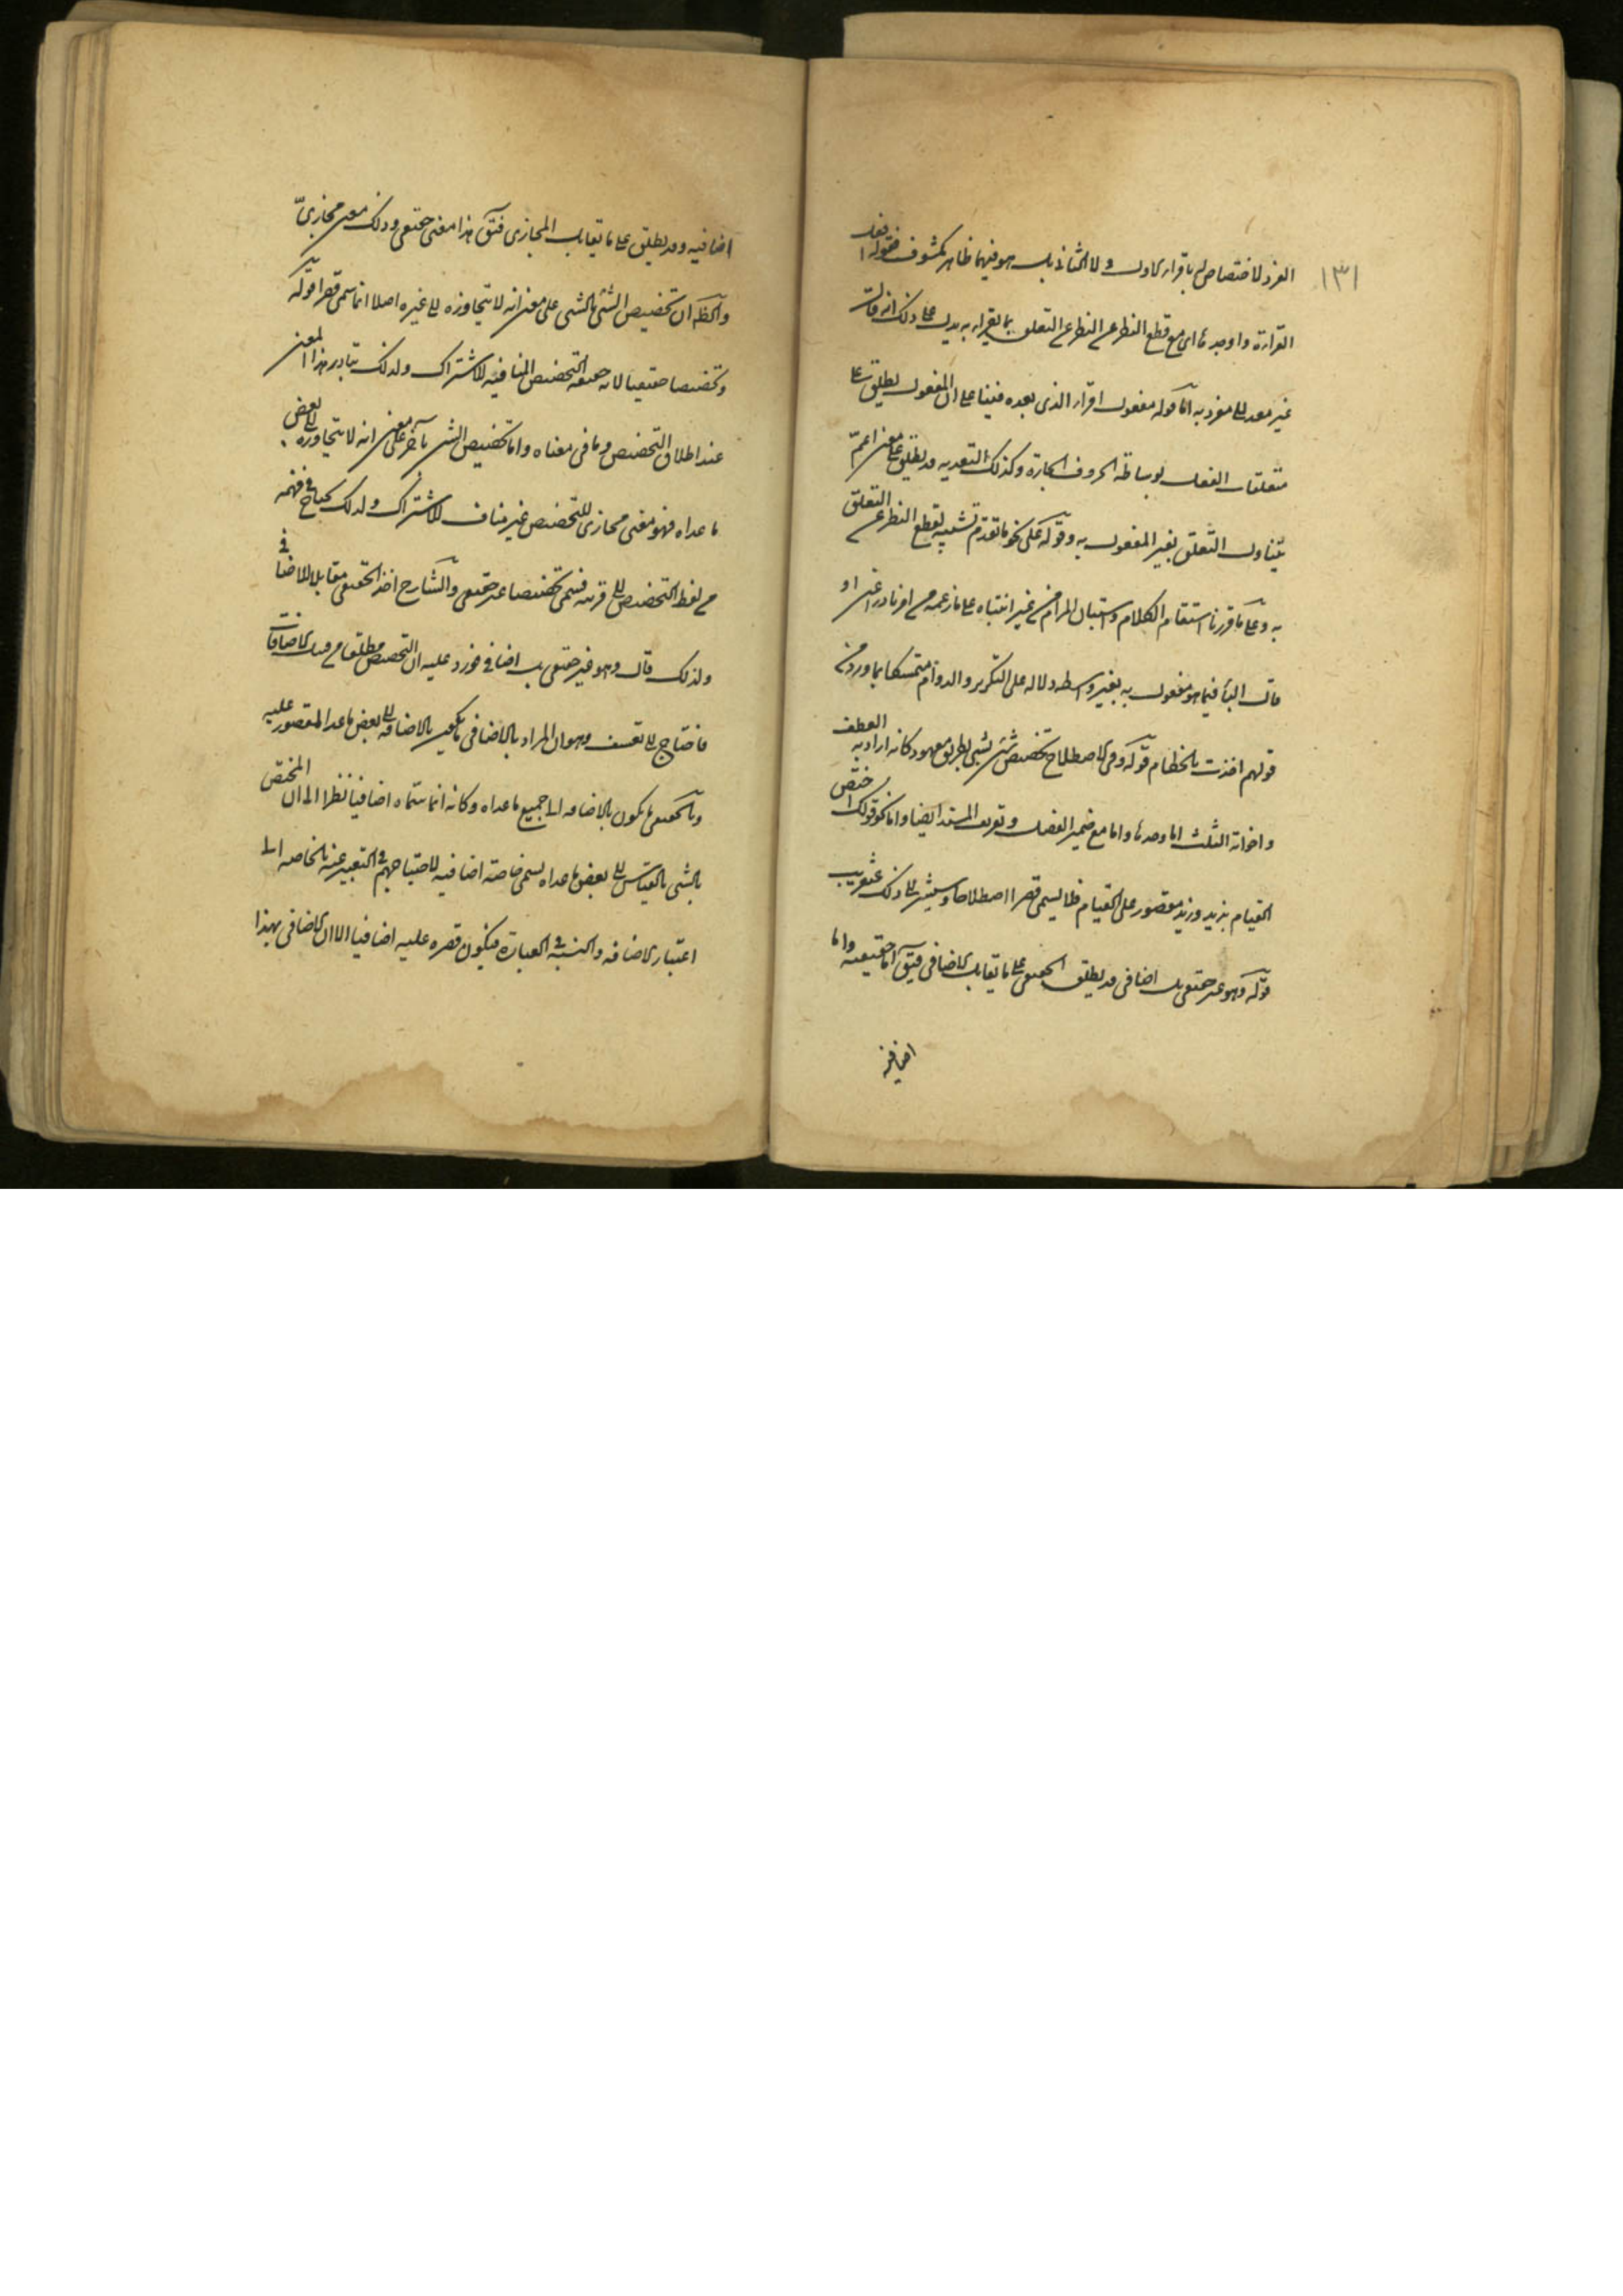 ١٣١
الفرد لاختصاص له باقرار الاول ولا الثانى بل هو فيهما ظاهر مكشوف فقوله افعل
القراءة واوجدها اى مع قطع النظر عن التعلق بما يقرا به يدل على ذلك انه قال
غير معدى الى مقروء به اما قوله مفعول اقرا الذى بعده فبناء على ان المفعول يطلق على
متعلقات الفعل بوساطة الحروف الجارة وكذلك التعدية قد يطلق على معنى اعم
يتناول التعلق بغير المفعول به وقوله على نحو ما تقدم تشبيه لقطع النظر عن التعلق
به وعلى ما قررنا استقام الكلام واستبان المرام من غير انتباه على ما زعمه من ان
قال الباء فيما هو مفعول به بغير واسطة دلالة على التكرير والدوام متمسكا بما ورد فى
قولهم اخذت بالخطام قوله وفى الاصطلاح تخصيص شئ بشئ بطريق معهود كانه اراد به العطف
واخواته الثلث اما وحدها واما مع ضمير الفصل وتعريف المسند ايضا واما نحو قولك اختص
القيام بزيد وزيد مقصور على القيام فلا يسمى قصرا اصطلاحا وسيشير الى ذلك عنقريب
قوله وهو غير حقيقى بل اضافى قد يطلق الحقيقى على ما يقابل الاضافى فيق اما حقيقية واما
اضافية
اضافيه وقد يطلق على ما يقابل المجازى فيق هذا معنى حقيقى وذلك معنى مجازى
والظ ان تخصيص الشئ بالشئ على معنى انه لا يتجاوزه الى غيره اصلا انما سمى قصرا
وتخصيصا حقيقيا لانه حقيقة التخصيص المنافية للاشتراك ولذلك يتبادر هذا المعنى
عند اطلاق التخصيص وما فى معناه واما تخصيص الشئ بآخر على معنى انه لا يتجاوزه الى بعض
ما عداه فهو معنى مجازى للتخصيص غير مناف للاشتراك ولذلك يحتاج فى فهمه
من لفظ التخصيص الى قرينة فسمى تخصيصا غير حقيقى والشارح اخذ الحقيقى مقابلا للاضافى
ولذلك قال وهو غير حقيقى بل اضافى فورد عليه ان التخصيص مطلقا من قبيل الاضافات
فاحتاج الى تعسف وهو ان المراد بالاضافى ما يكون بالاضافة الى بعض ما عدا المقصور عليه
وبالحقيقى ما يكون بالاضافه الى جميع ما عداه وكانه انما سماه اضافيا نظرا الى ان المختص
بالشئ بالقياس الى بعض ما عداه يسمى خاصة اضافيه لاحتياجهم فى التعبير عنه بالخاصه الى
اعتبار الاضافه والنسبة فى العبارة فيكون قصره عليه اضافيا الا ان الاضافى بهذا